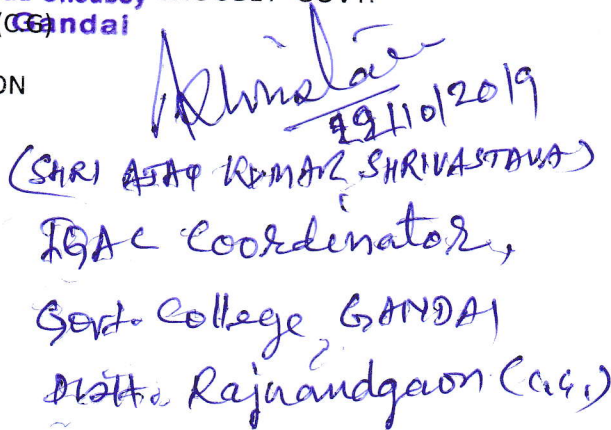 (CG) Gandai
ON
29/10/2019
(SHRI AJAY KUMAR SHRIVASTAVA)
IQAC Coordinator,
Govt. College, GANDAI
Distt. Rajnandgaon (C.G.)